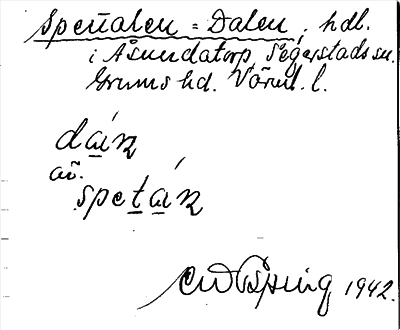 Spetalen = Dalen, hdl.
i Åsundatorp, Segerstads sn.
Grums hd. Värml. l.
dán
äv.
spetán
1942.